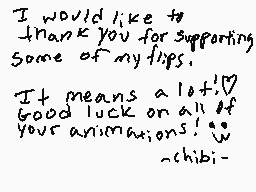 I would like to
thank you for supporting
some of my flips.
It means a lot!♡
Good luck on all of
your animations!
~chibi~